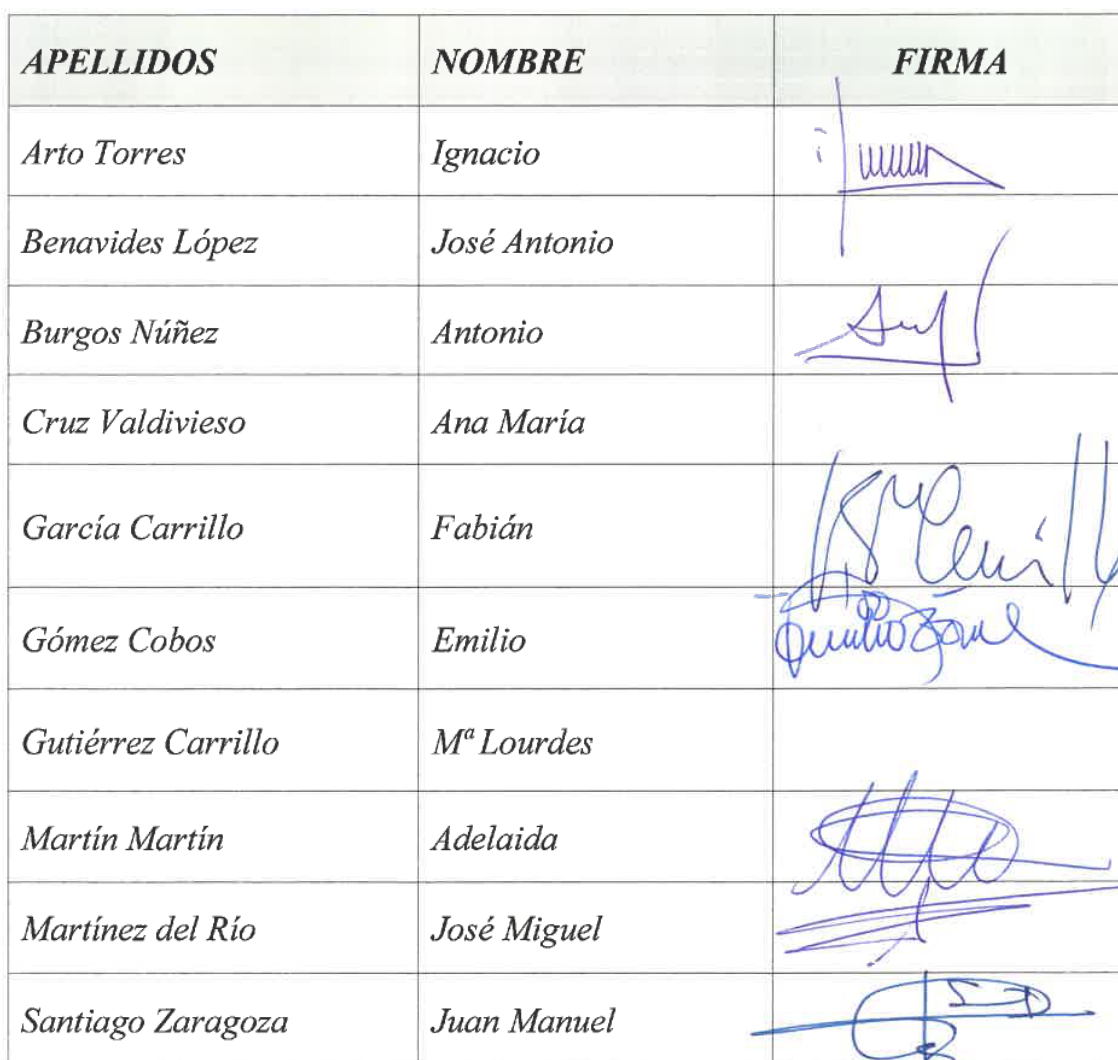 APELLIDOS NOMBRE FIRMA
Arto Torres Ignacio
Benavides López José Antonio
Burgos Núñez Antonio
Cruz Valdivieso Ana María
García Carrillo Fabián
Gómez Cobos Emilio
Gutiérrez Carrillo Mª Lourdes
Martín Martín Adelaida
Martínez del Río José Miguel
Santiago Zaragoza Juan Manuel